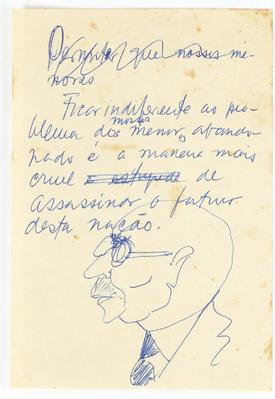 Permitir que nossos me-
nores
Ficar indiferente ao pro-
blema dos nossos menores abando-
nado é a maneira mais
cruel e estúpida de
assassinar o futuro
desta nação.